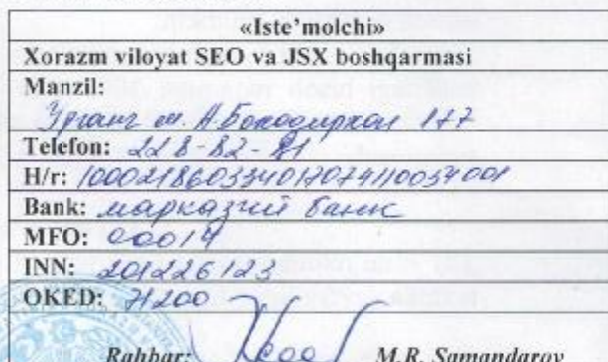 «Iste’molchi»
Xorazm viloyat SEO va JSX boshqarmasi
Manzil:
Урганч ш. А.Баходирхон 177
Telefon: 228-82-81
H/r: 100021860334017074110054001
Bank: марказий банк
MFO: 00014
INN: 201226123
OKED: 71200
Rahbar: M.R. Samandarov